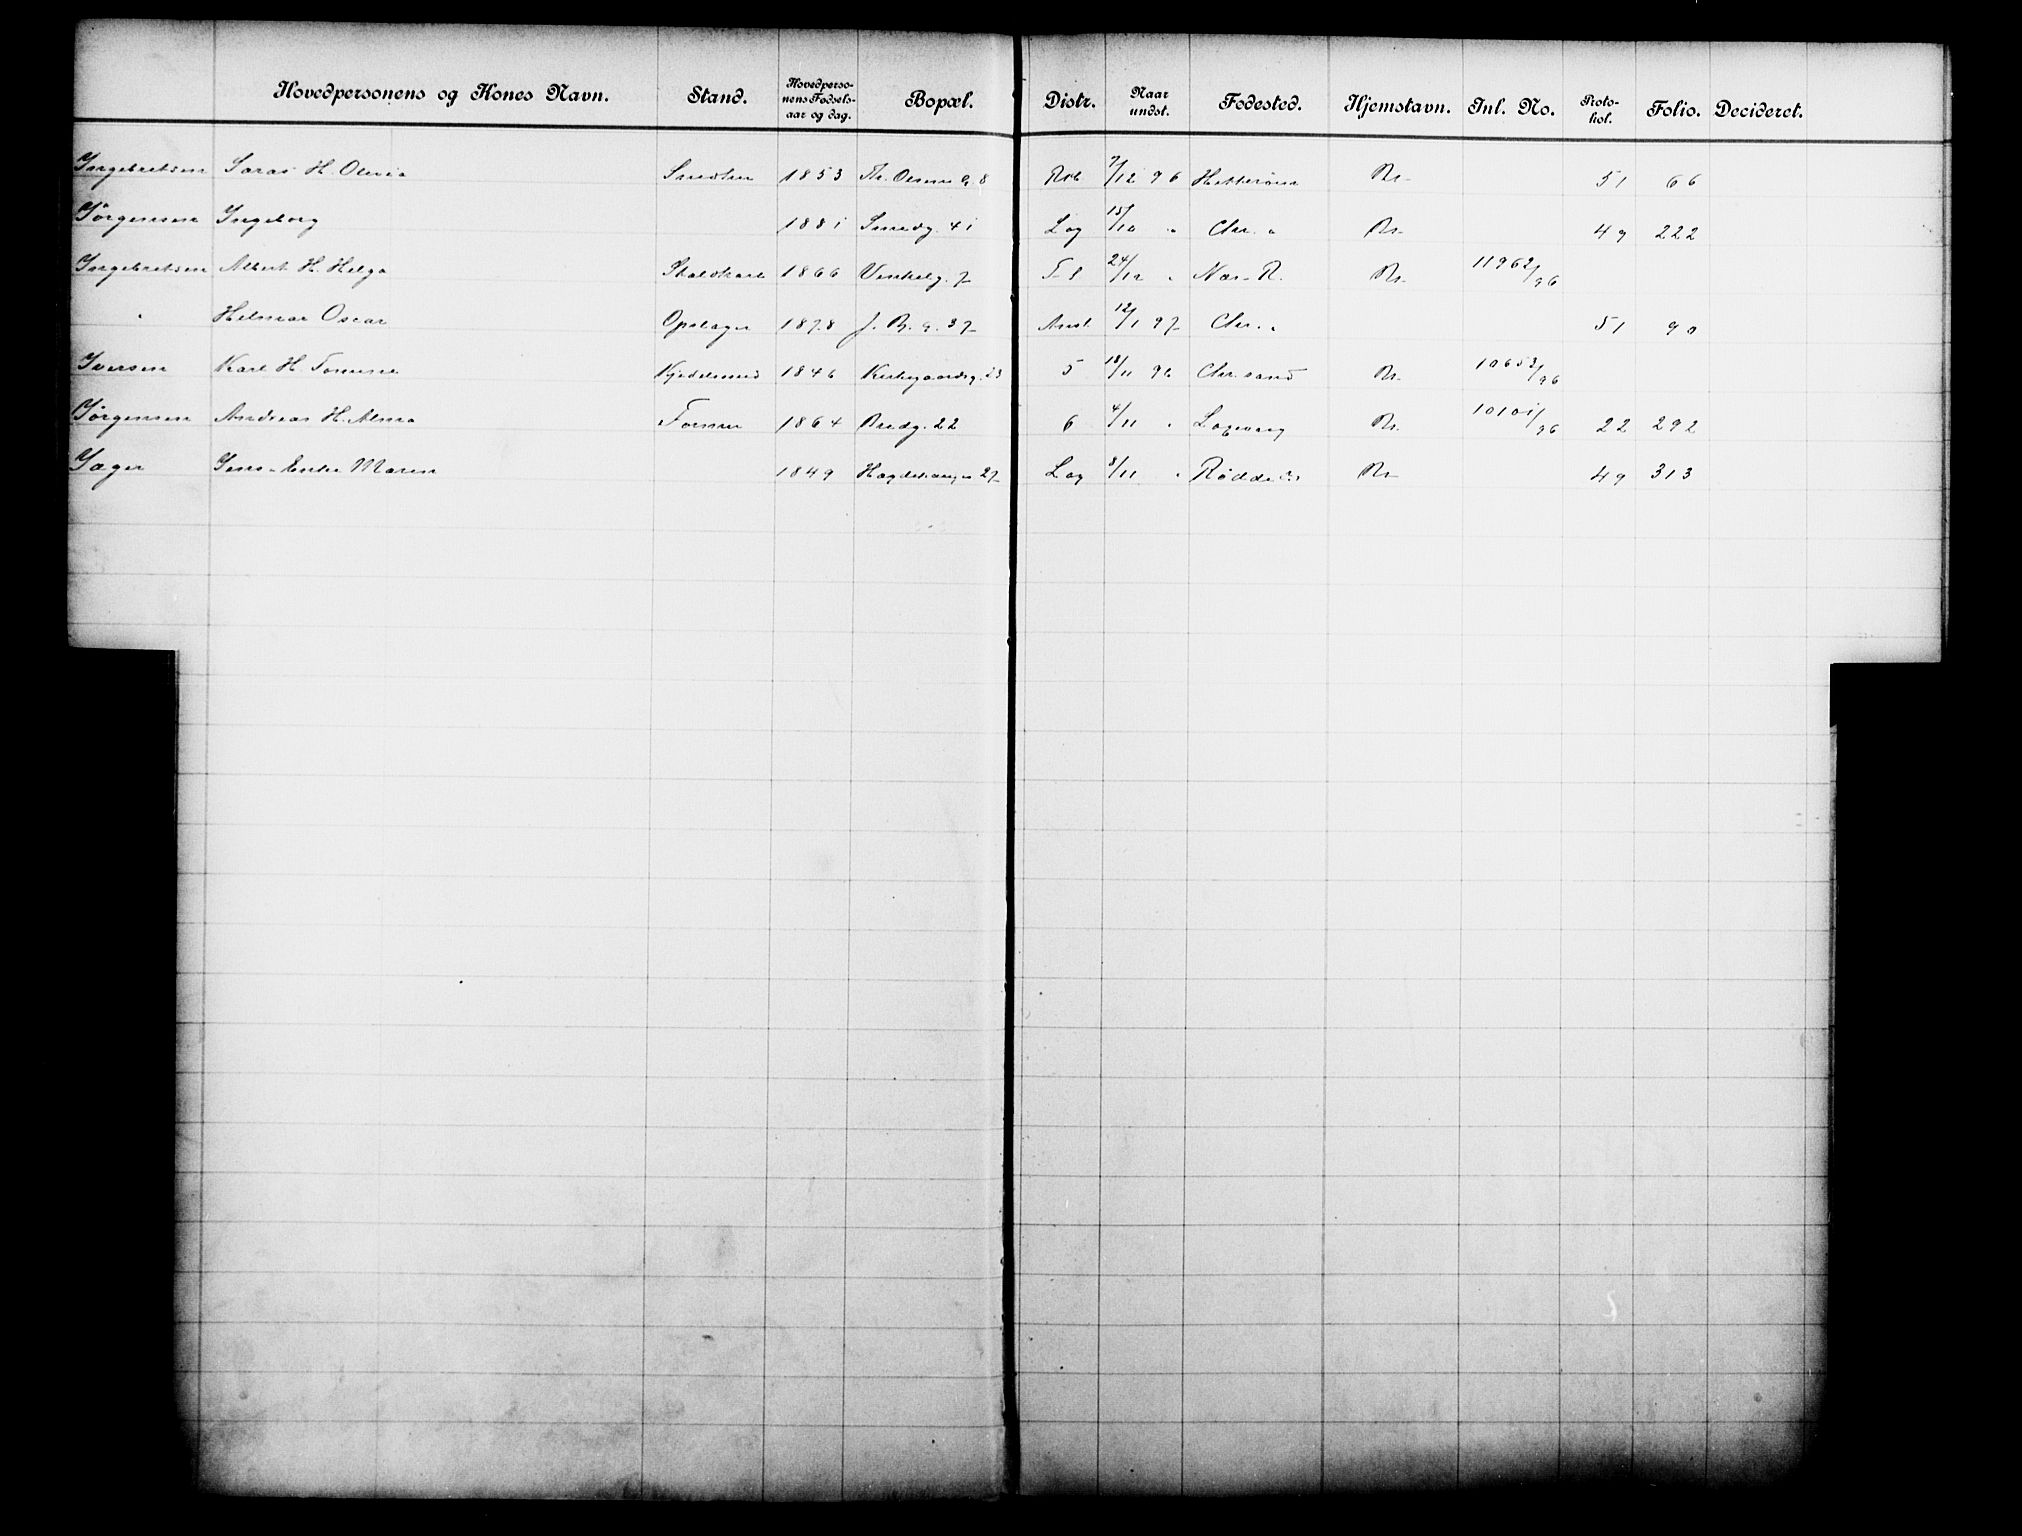 Hovedpersonens og Kones Navn. Stand. Hovedpersonens Fødselsaar og dag. Bopæl. Distr. Naar undst. Fødested. Hjemstavn. Inl. No. Protokol. Folio. Decideret.
Ingebretsen H. Olevia 1853 8 7/12 96 Rr. 51 66
Jørgensen Ingeborg 1881 Smedg. 41 Log 15/10 " Chr. a R. 49 222
Ingebretsen Albert H. Helga Staldkarl 1866 Vinkelg. 7 24/12 " Næs - R. R. 11962/96
" Helmar Oscar Opslager 1878 J. B. g. 37 Anst. 12/1 97 Chr. a 51 90
Iversen Karl H. Tomine Kjedelsmed 1846 Kirkegaardsg. 23 5 18/11 96 Chr.sand R. 10653/96
Jørgensen Andreas H. Alma Former 1864 Bredg. 22 6 4/11 " R. 10101/96 22 292
Jæger Jens - Enke Maren 1849 27 Log 8/11 " R. 49 313